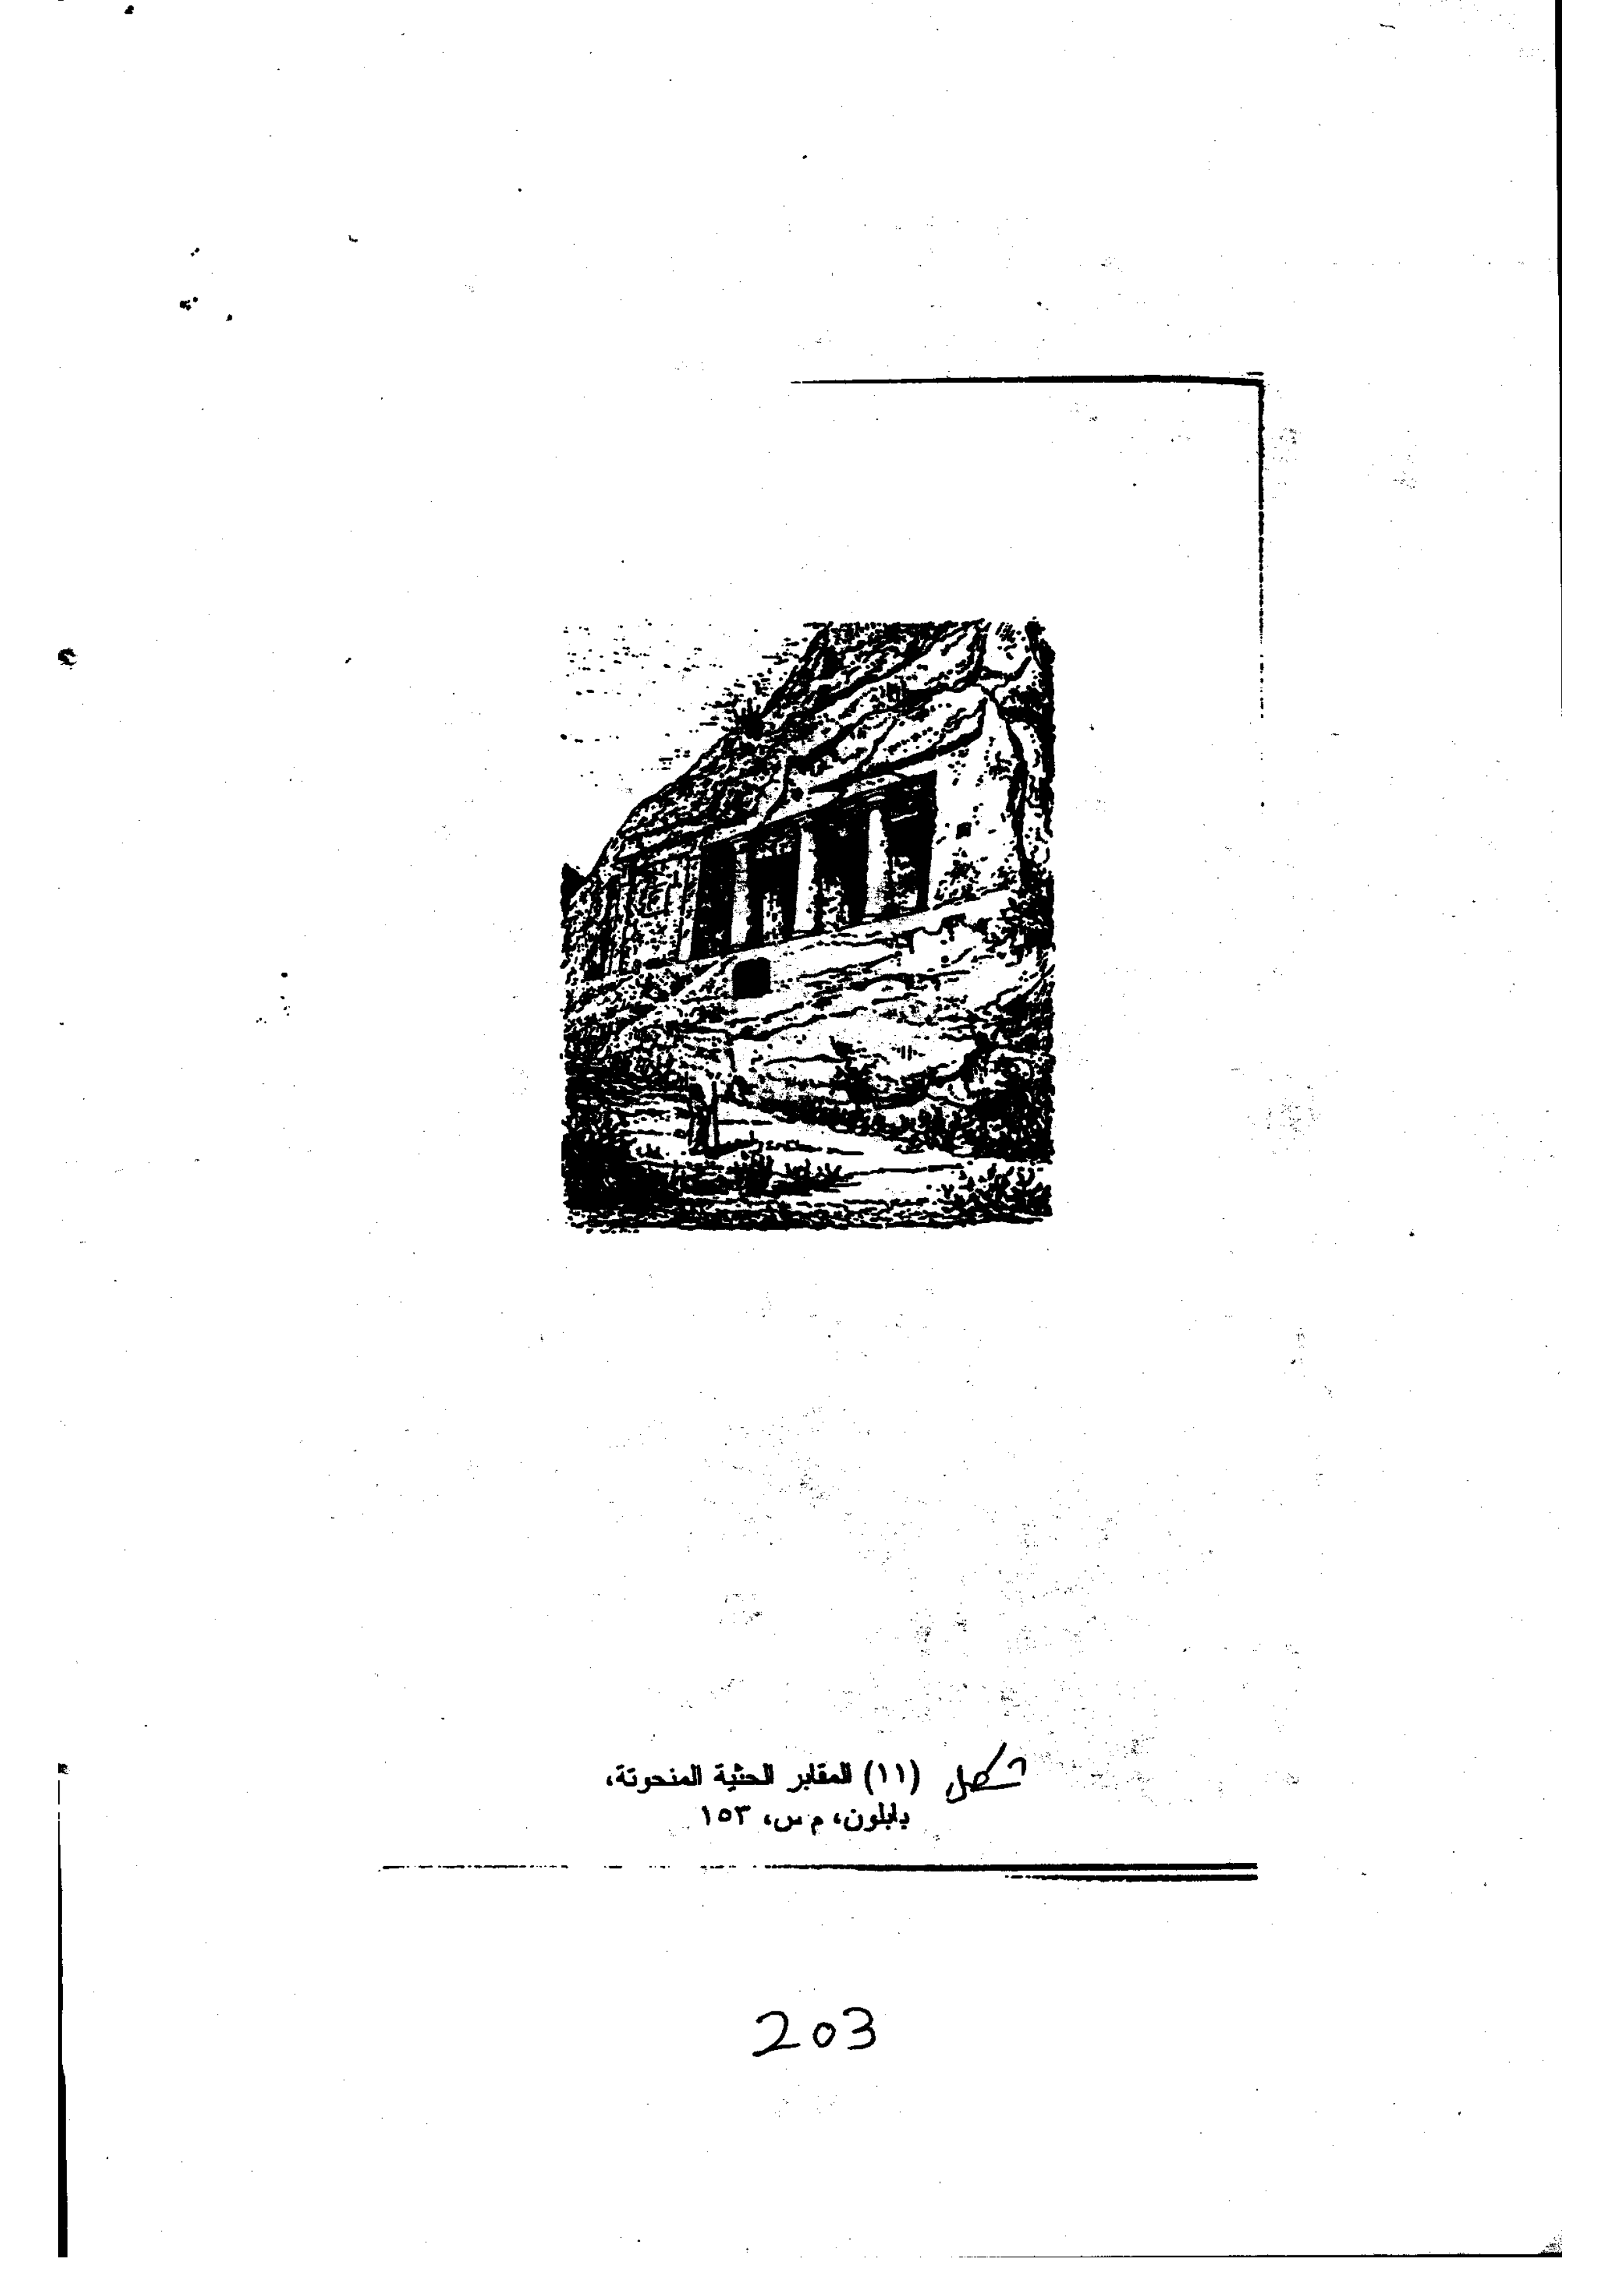 شكل (١١) المقابر الحثية المنحوتة،
بابلون، م س، ١٥٣
203